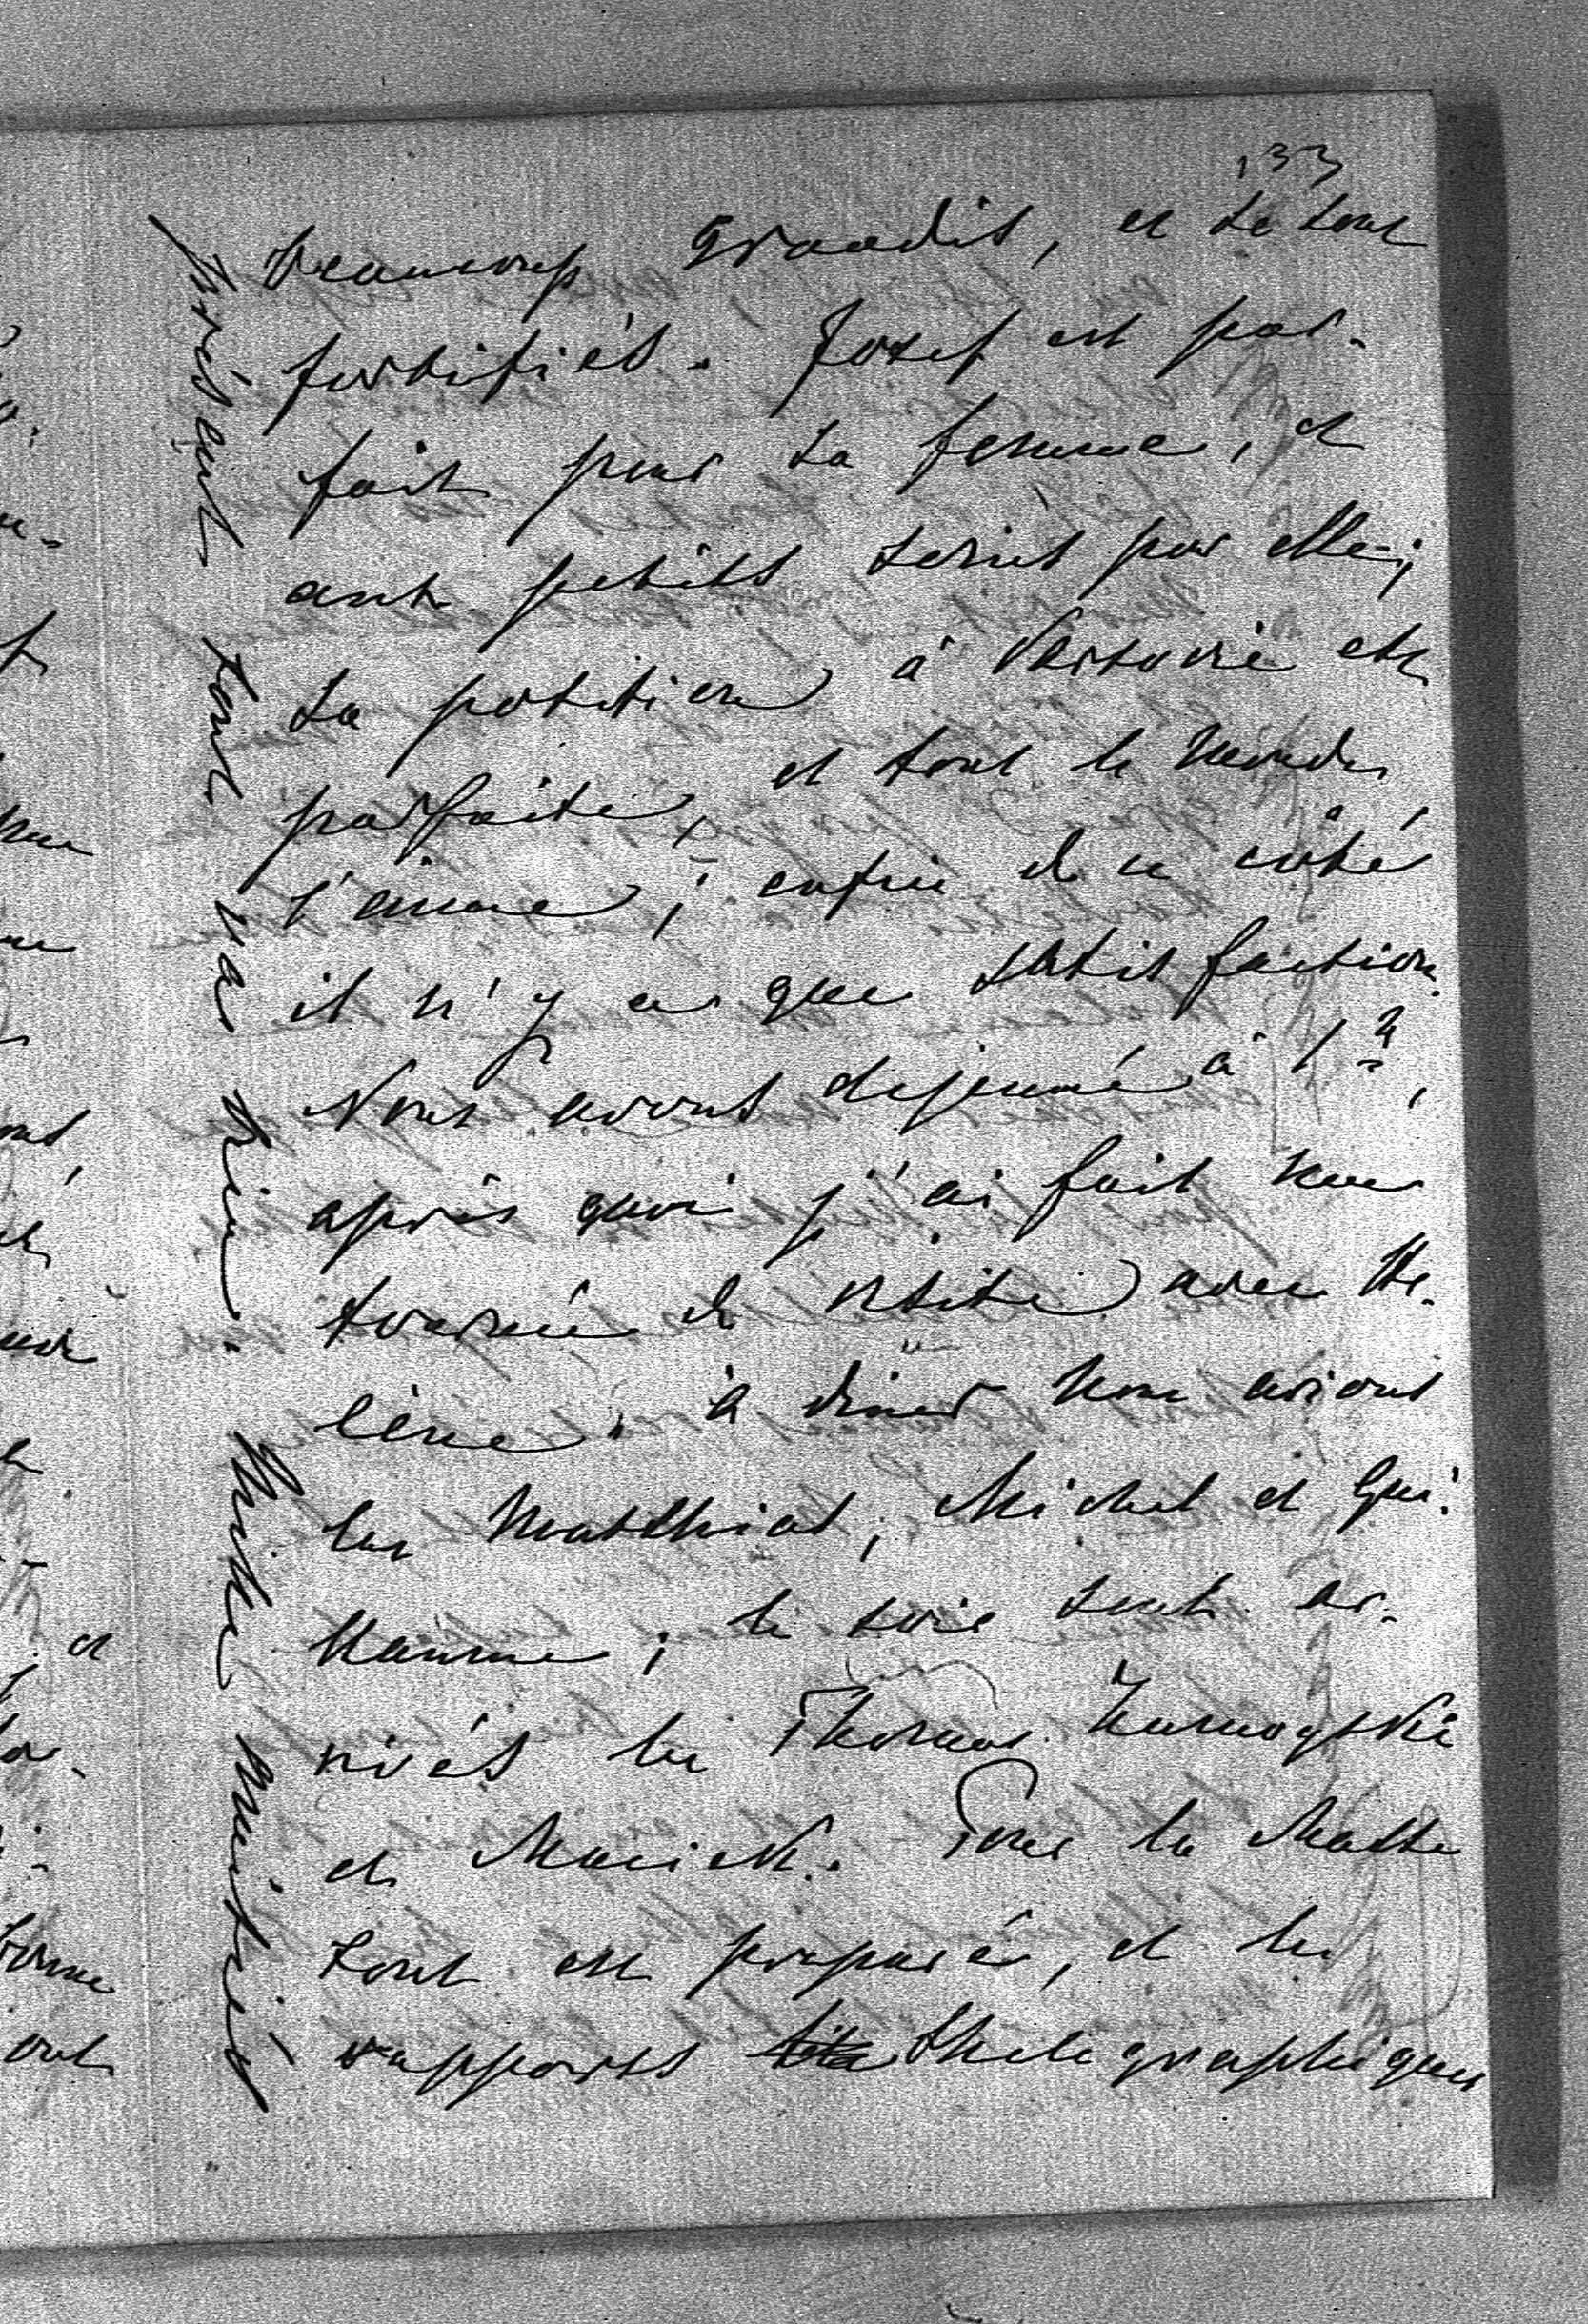 133
beaucoup grandis, et se sont
fortifiés. Josef est par-
fait pour sa femme, et
aux petits soins pour elle;
sa position à Varsovie est
parfaite, et tout le monde
l'aime; enfin de ce côté
il n'y a que satisfaction.
Nous avons dejeuné à 1 h,
après quoi j'ai fait une
tournée de visite avec He-
lène; à diner nous avions
les Matthias, Michel et Gui-
llaume; le soir sont ar-
rivés les Thomas Zamoyski
et Maciek. Pour la Malte
tout est preparé, et les
rapports thelegraphiques
présent tout va bien. Mille amitiés